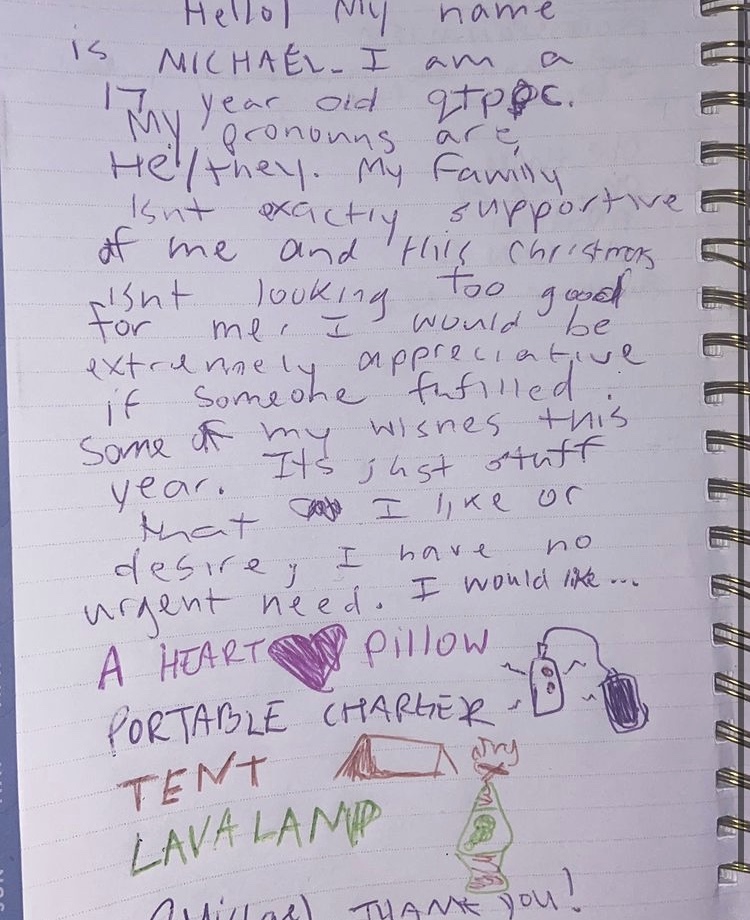 Hello! My name
is MICHAEL. I am a
17 year old qtpoc.
My pronouns are,
He/they. My Family
Isnt exactly supportive
of me and this christmas
isnt looking too good
for me. I would be
extremely appreciative
if someone fufilled
some of my wishes this
year. Its just stuff
that I like or
desire, I have no
urgent need. I would like...
A HEART Pillow
PORTABLE CHARGER
TENT
LAVA LAMP
(Michael) THANK YOU!